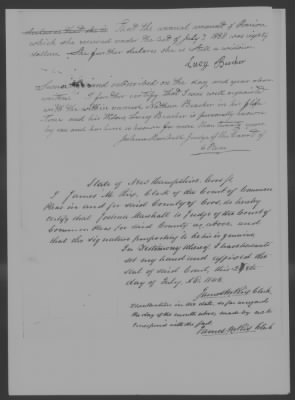 declares that she is That the annual amount of Pension
which she received under the act of July 7 1838 was eighty
dollars She further declares she is still a widow
Lucy Barker
Sworn and subscribed on the day and year above
written I further certify that I was well acquainted
with the within named Nathan Barker in his life
time and his Widow Lucy Barker is personally known
by me and has been so known for more than twenty years
Joshua Marshall Judge of the Court of
State of New Hampshire Coos ss
I James M. Rix Clerk of the Court of Common
Pleas in and for said County of Coos do hereby
certify that Joshua Marshall is Judge of the Court of
Common Pleas for said County as above, and
that the signature purporting to be his is genuine
In Testimony Whereof I have hereunto
set my hand and affixed the
seal of said Court, this
day of July, AD.
James M Rix Clerk
in the date, so far as regards
the day of the month above, made by me to
correspond with the fact
James M Rix Clerk